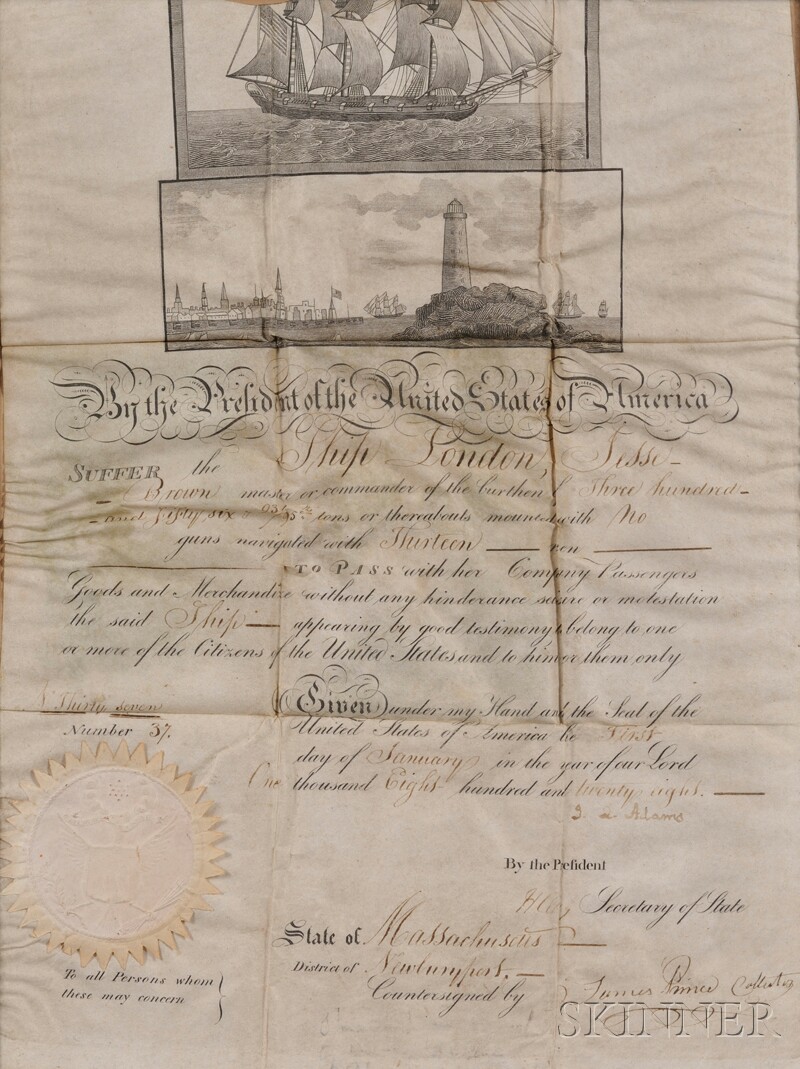 By the President of the United States of America
SUFFER the Ship London, Jesse
Brown master or commander of the burthen of Three hundred
and fifty six tons or thereabouts mounted with No
guns navigated with Thirteen men
TO PASS with her Company Passengers
Goods and Merchandize without any hinderance seizure or molestation
the said Ship appearing by good testimony to belong to one
or more of the Citizens of the United States and to him or them only
Given under my Hand and the Seal of the
N Thirty seven
United States of America the First
Number 37.
day of January in the year of our Lord
One thousand Eight hundred and twenty eight.
J. Q. Adams
By the President
H Clay Secretary of State
State of Massachusetts
District of Newburyport.
To all Persons whom
these may concern
Countersigned by James Prince Collector
SKINNER